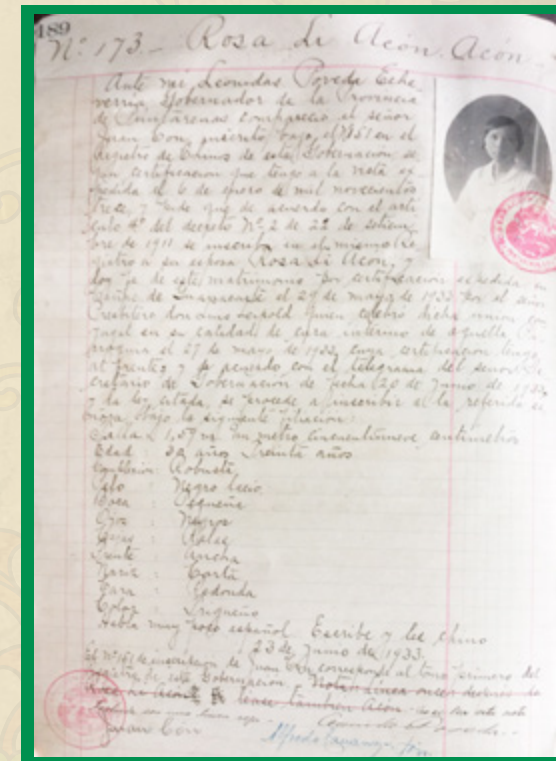 189
Nº 173 - Rosa Li Acón Acón -
Ante mí Leonidas Poveda Eche-
verría, Gobernador de la Provincia
de Puntarenas compareció el señor
Juan Con, inscrito bajo el Nº 151 en el
registro de Chinos de esta Gobernación, se-
gún certificación que tengo a la vista ex-
pedida el 6 de enero de mil novecientos
trece, y pide que de acuerdo con el artí-
culo 4º del decreto Nº 2 de 22 de setiem-
bre de 1911 se inscriba en el mismo re-
gistro a su esposa Rosa Li Acón, y
de este matrimonio por certificación expedida en
de Guanacaste el 29 de mayo de 1933 por el señor
Presbítero don Luis Leipold quien celebró dicha unión con-
yugal en su calidad de cura interino de aquella Pa-
rroquia el 27 de mayo de 1933, cuya certificación tengo
al frente y de acuerdo con el telegrama del señor Se-
cretario de Gobernación de fecha 20 de junio de 1933
y la ley citada, se procede a inscribir a la referida se-
ñora bajo la siguiente filiación:
Talla : 1,59 m un metro cincuentinueve centímetros
Edad : 30 años treinta años
Robusta
Pelo : Negro lacio
Boca : Pequeña
Ojos : Negros
Cejas : Ralas
Frente : Ancha
Nariz : Corta
Cara : Redonda
Color : Trigueño
Habla muy poco español. Escribe y lee chino
23 de junio de 1933.
El Nº 151 de inscripción de Juan Con corresponde al tomo primero del
registro de esta Gobernación. Nota: línea once después de
léase también Acón
Juan Con